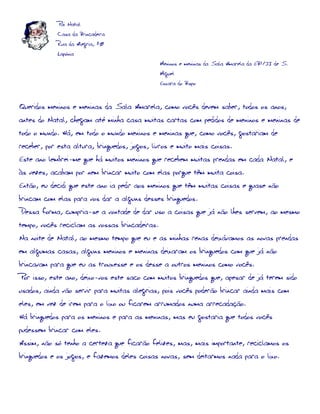 Pai Natal
Casa da Brincadeira
Rua da Alegria, nº
Lapónia
Meninos e meninas da Sala Amarela da EB1/JI de S.
Miguel
Caixaria do Bispo
Queridos meninos e meninas da Sala Amarela, como vocês devem saber, todos os anos,
antes do Natal, chegam até minha casa muitas cartas com pedidos de meninos e meninas de
todo o mundo. Há, em todo o mundo meninos e meninas que, como vocês, gostariam de
receber, por esta altura, brinquedos, jogos, livros e muito mais coisas.
Este ano lembrei-me que há muitos meninos que recebem muitas prendas em cada Natal, e
às vezes, acabam por nem brincar muito com elas porque têm muita coisa.
Então, eu decidi que este ano ia pedir aos meninos que têm muitas coisas e quase não
brincam com elas para vos dar a alguns desses brinquedos.
Dessa forma, cumpria-se a vontade de dar uso a coisas que já não lhes servem, ao mesmo
tempo, vocês reciclam as vossas brincadeiras.
Na noite de Natal, ao mesmo tempo que eu e as minhas renas deixávamos as novas prendas
em algumas casas, alguns meninos e meninas deixaram os brinquedos com que já não
brincavam para que eu as trouxesse e os desse a outros meninos como vocês.
Por isso, este ano, deixo-vos este saco com muitos brinquedos que, apesar de já terem sido
usados, ainda vão servir para muitas alegrias, pois vocês poderão brincar ainda mais com
eles, em vez de irem para o lixo ou ficarem arrumados numa arrecadação.
Há brinquedos para os meninos e para as meninas, mas eu gostaria que todos vocês
pudessem brincar com eles.
Assim, não só tenho a certeza que ficarão felizes, mas, mais importante, reciclamos os
brinquedos e os jogos, e fazemos deles coisas novas, sem deitarmos nada para o lixo.